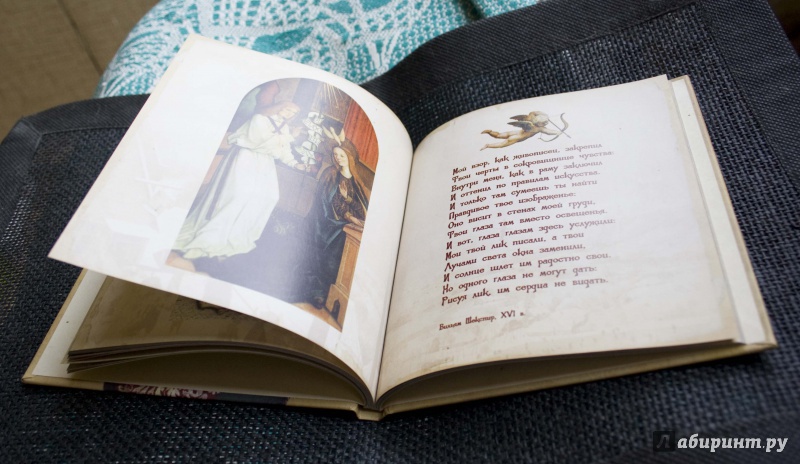 Мой взор, как живописец, закрепил
Твои черты в сокровищнице чувства.
Внутри меня, как в раму заключил
И оттенил по правилам искусства.
И только там сумеешь ты найти
Правдивое твое изображенье:
Оно висит в стенах моей груди,
Твои глаза там вместо освещенья.
И вот, глаза глазам здесь услужили:
Мои твой лик писали, а твои
Лучами света окна заменили,
И солнце шлет им радостно свои.
Но одного глаза не могут дать:
Рисуя лик, им сердца не видать.
Вильям Шекспир, XVI в.
Лабиринт.ру